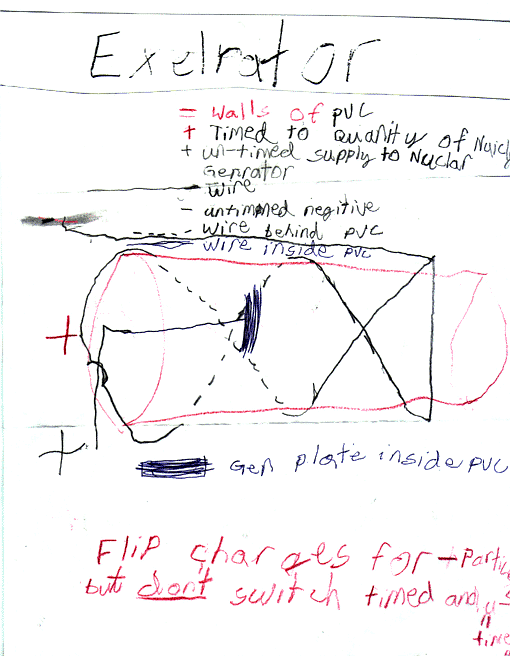 Exelrator
= Walls of PVC
+ Timed to quanity of
+ un-timed supply to Nuclar
Genrator
— Wire
- untimmed negitive
----- Wire behind PVC
wire inside PVC
+
+
Gen plate inside PVC
Flip charges for +
but don't switch timed and